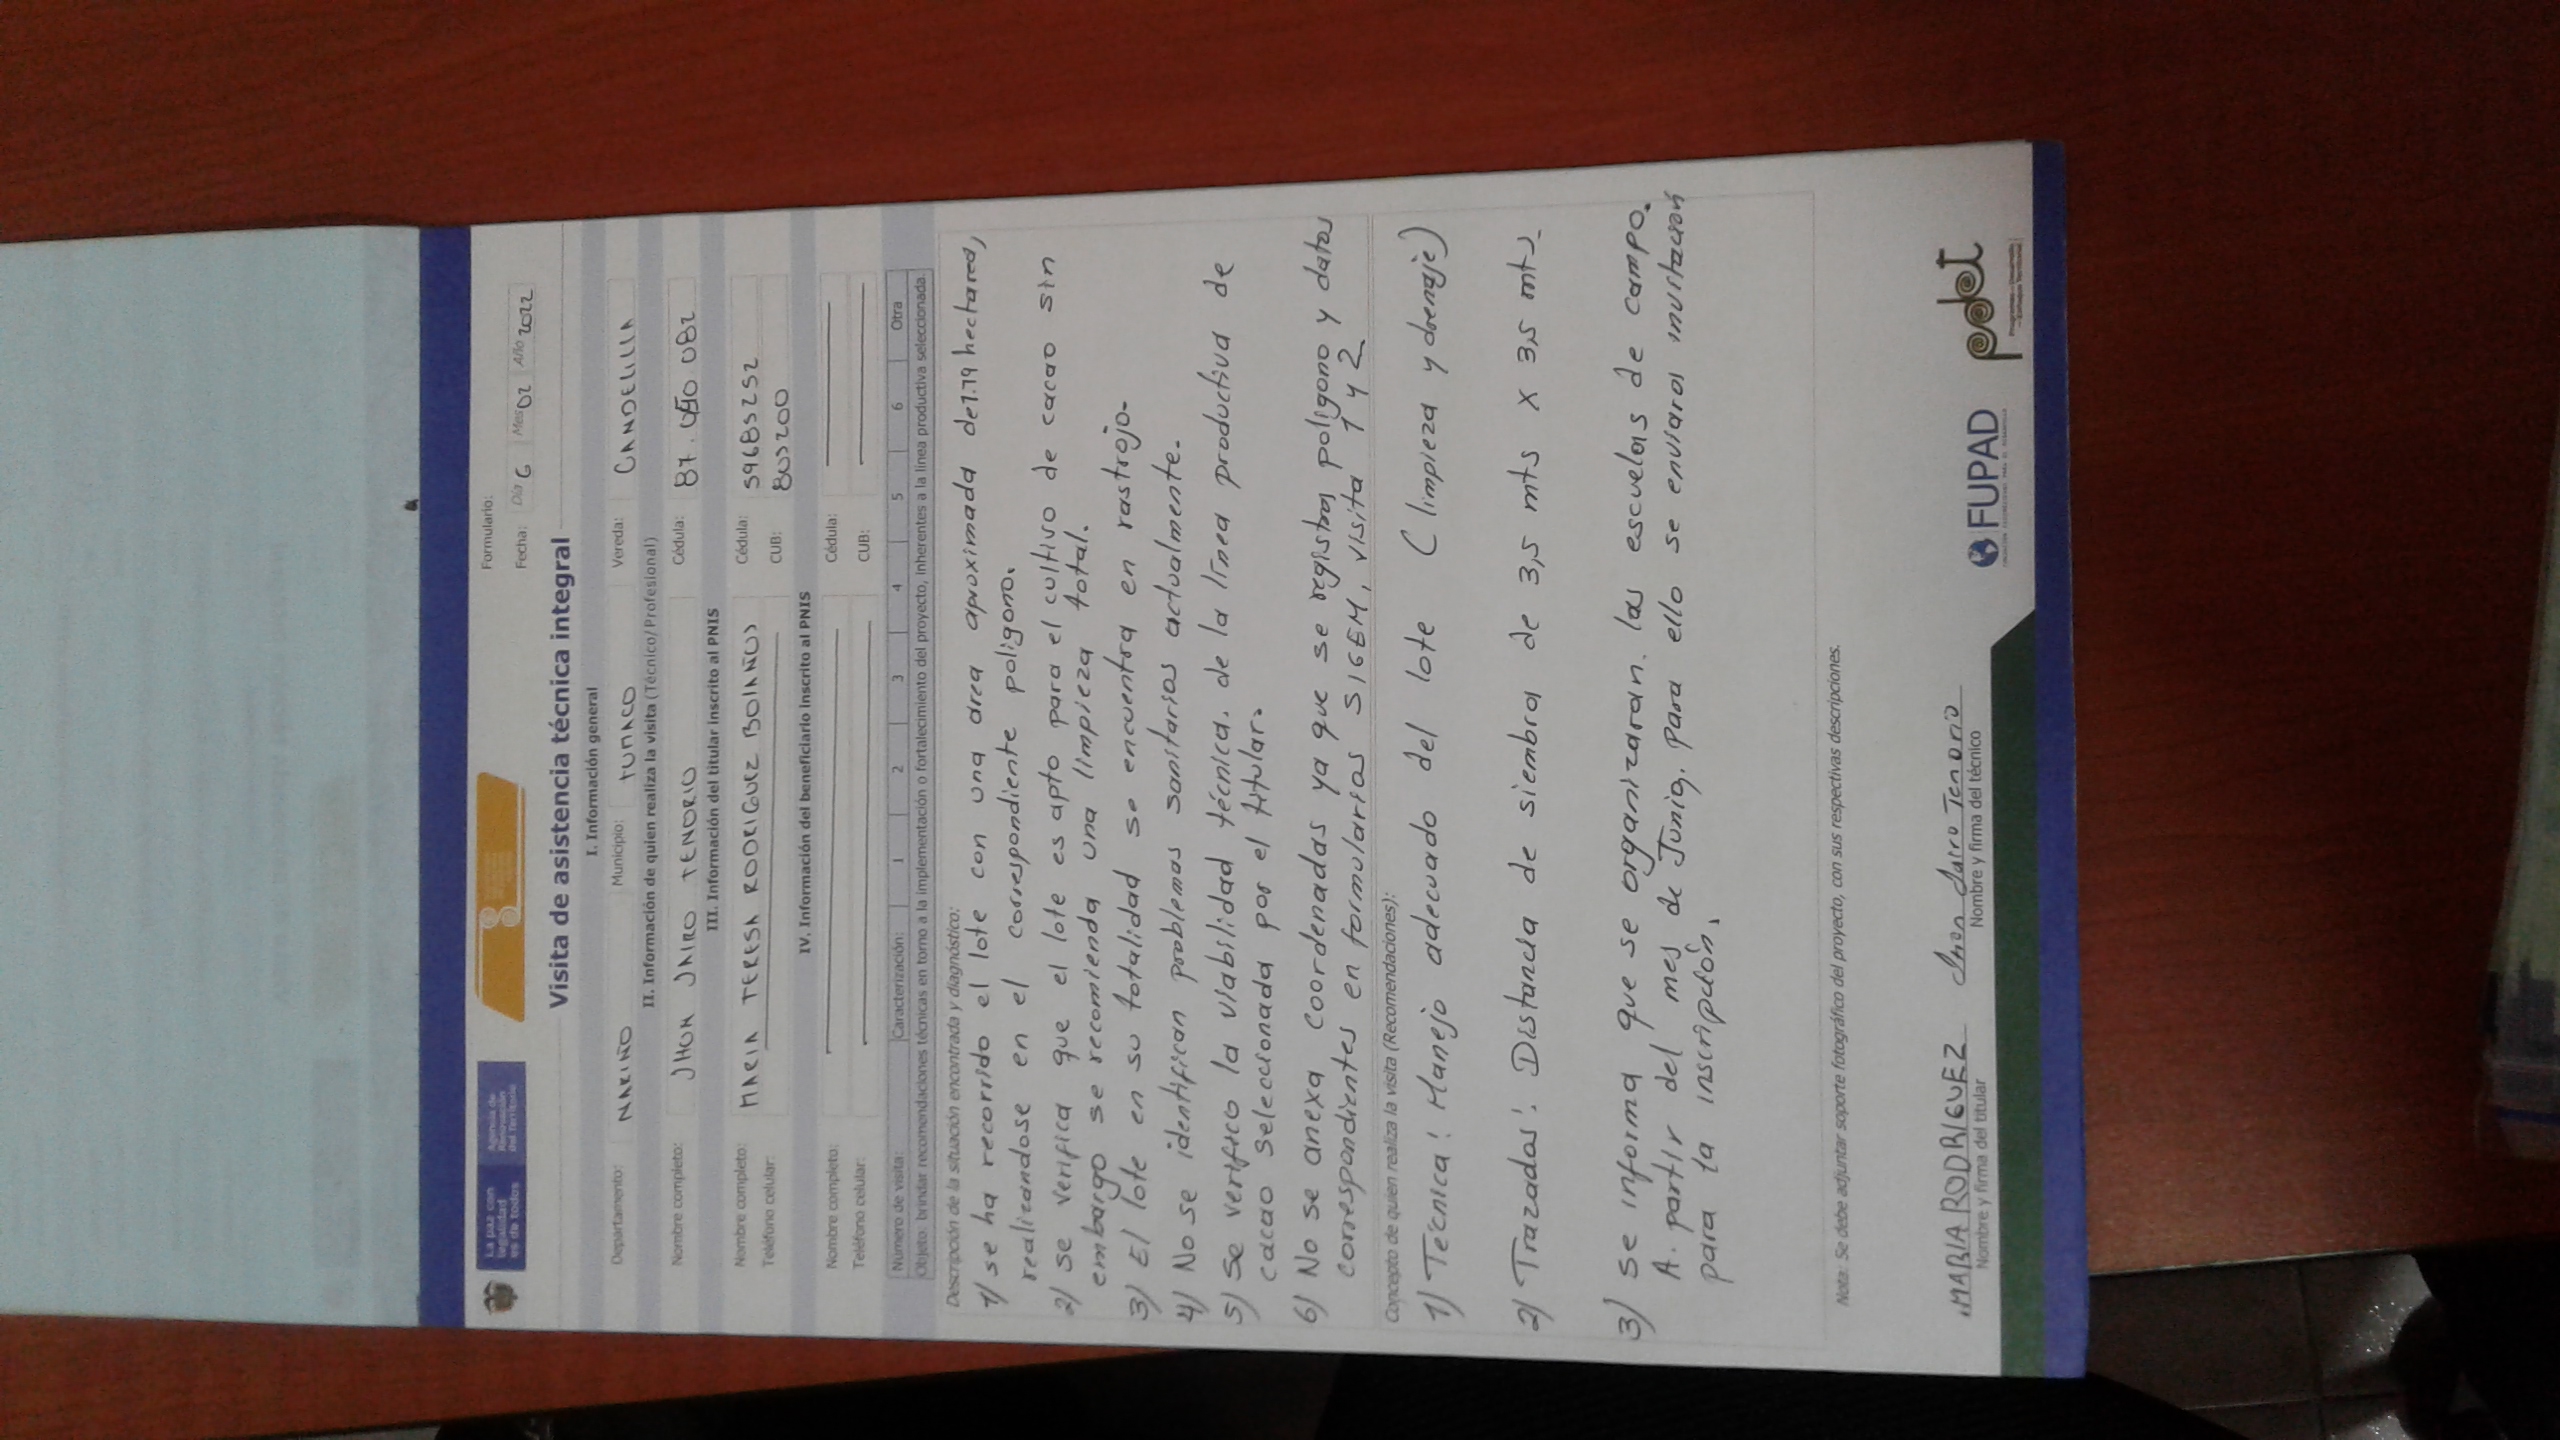 La paz con
legalidad
es de todos
Agencia de
Renovación
del Territorio
Formulario:
Fecha: Día 6 Mes 02 Año 2022
Visita de asistencia técnica integral
I. Información general
Departamento: NARIÑO Municipio: TUMACO Vereda: CANDELILLA
II. Información de quien realiza la visita (Técnico/Profesional)
Nombre completo: JHON JAIRO TENORIO Cédula:
III. Información del titular inscrito al PNIS
Nombre completo: MARIA TERESA RODRIGUEZ BOLAÑOS Cédula: 59685252
Teléfono celular: CUB: 805200
IV. Información del beneficiario inscrito al PNIS
Nombre completo: Cédula:
Teléfono celular: CUB:
Número de visita: Caracterización: 1 2 3 4 5 6 Otra
Objeto: brindar recomendaciones técnicas en torno a la implementación o fortalecimiento del proyecto, inherentes a la línea productiva seleccionada.
Descripción de la situación encontrada y diagnóstico:
1) se ha recorrido el lote con una area aproximada de 1.79 hectareas,
realizandose en el correspondiente poligono.
2) se verifica que el lote es apto para el cultivo de cacao sin
embargo se recomienda una limpieza total.
3) El lote en su totalidad se encuentra en rastrojo.
4) No se identifican problemas sanitarios actualmente.
5) Se verifico la viabilidad técnica. de la línea productiva de
cacao seleccionada por el titular.
6) No se anexa coordenadas ya que se registra poligono y datos
correspondientes en formularios SIGEM, visita 1 y 2
Concepto de quien realiza la visita (Recomendaciones):
1) Técnica: Manejo adecuado del lote (limpieza y drenaje)
2) Trazados: Distancia de siembra de 3,5 mts x 3,5 mts.
3) Se informa que se organizaran. las escuelas de campo.
A. partir del mes de Junio, para ello se enviara invitación
para la inscripción.
Nota: Se debe adjuntar soporte fotográfico del proyecto, con sus respectivas descripciones.
MARIA RODRIGUEZ Jhon Jairo Tenorio
Nombre y firma del titular Nombre y firma del técnico
FUPAD
pdet